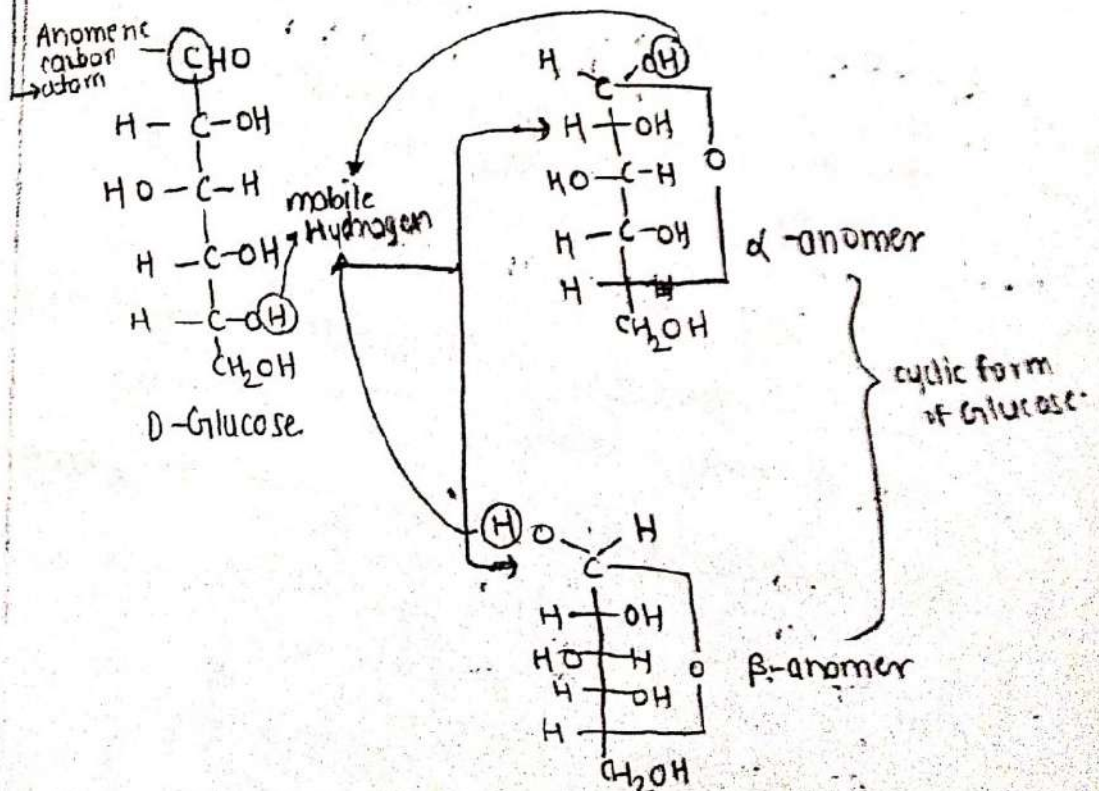 Anomeric
carbon
atom
CHO
H - C - OH
HO - C - H
H - C - OH
H - C - OH
CH2OH
D-Glucose
mobile
Hydrogen
H OH
C
H OH
HO - C - H
H - C - OH
H H
CH2OH
O
α-anomer
cyclic form
of Glucose.
H O H
C
H OH
HO H
H OH
H
CH2OH
O
β-anomer